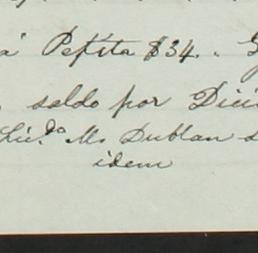 á Pepita $34..
saldo por Dici
Lic.do M. Dublan s
idem